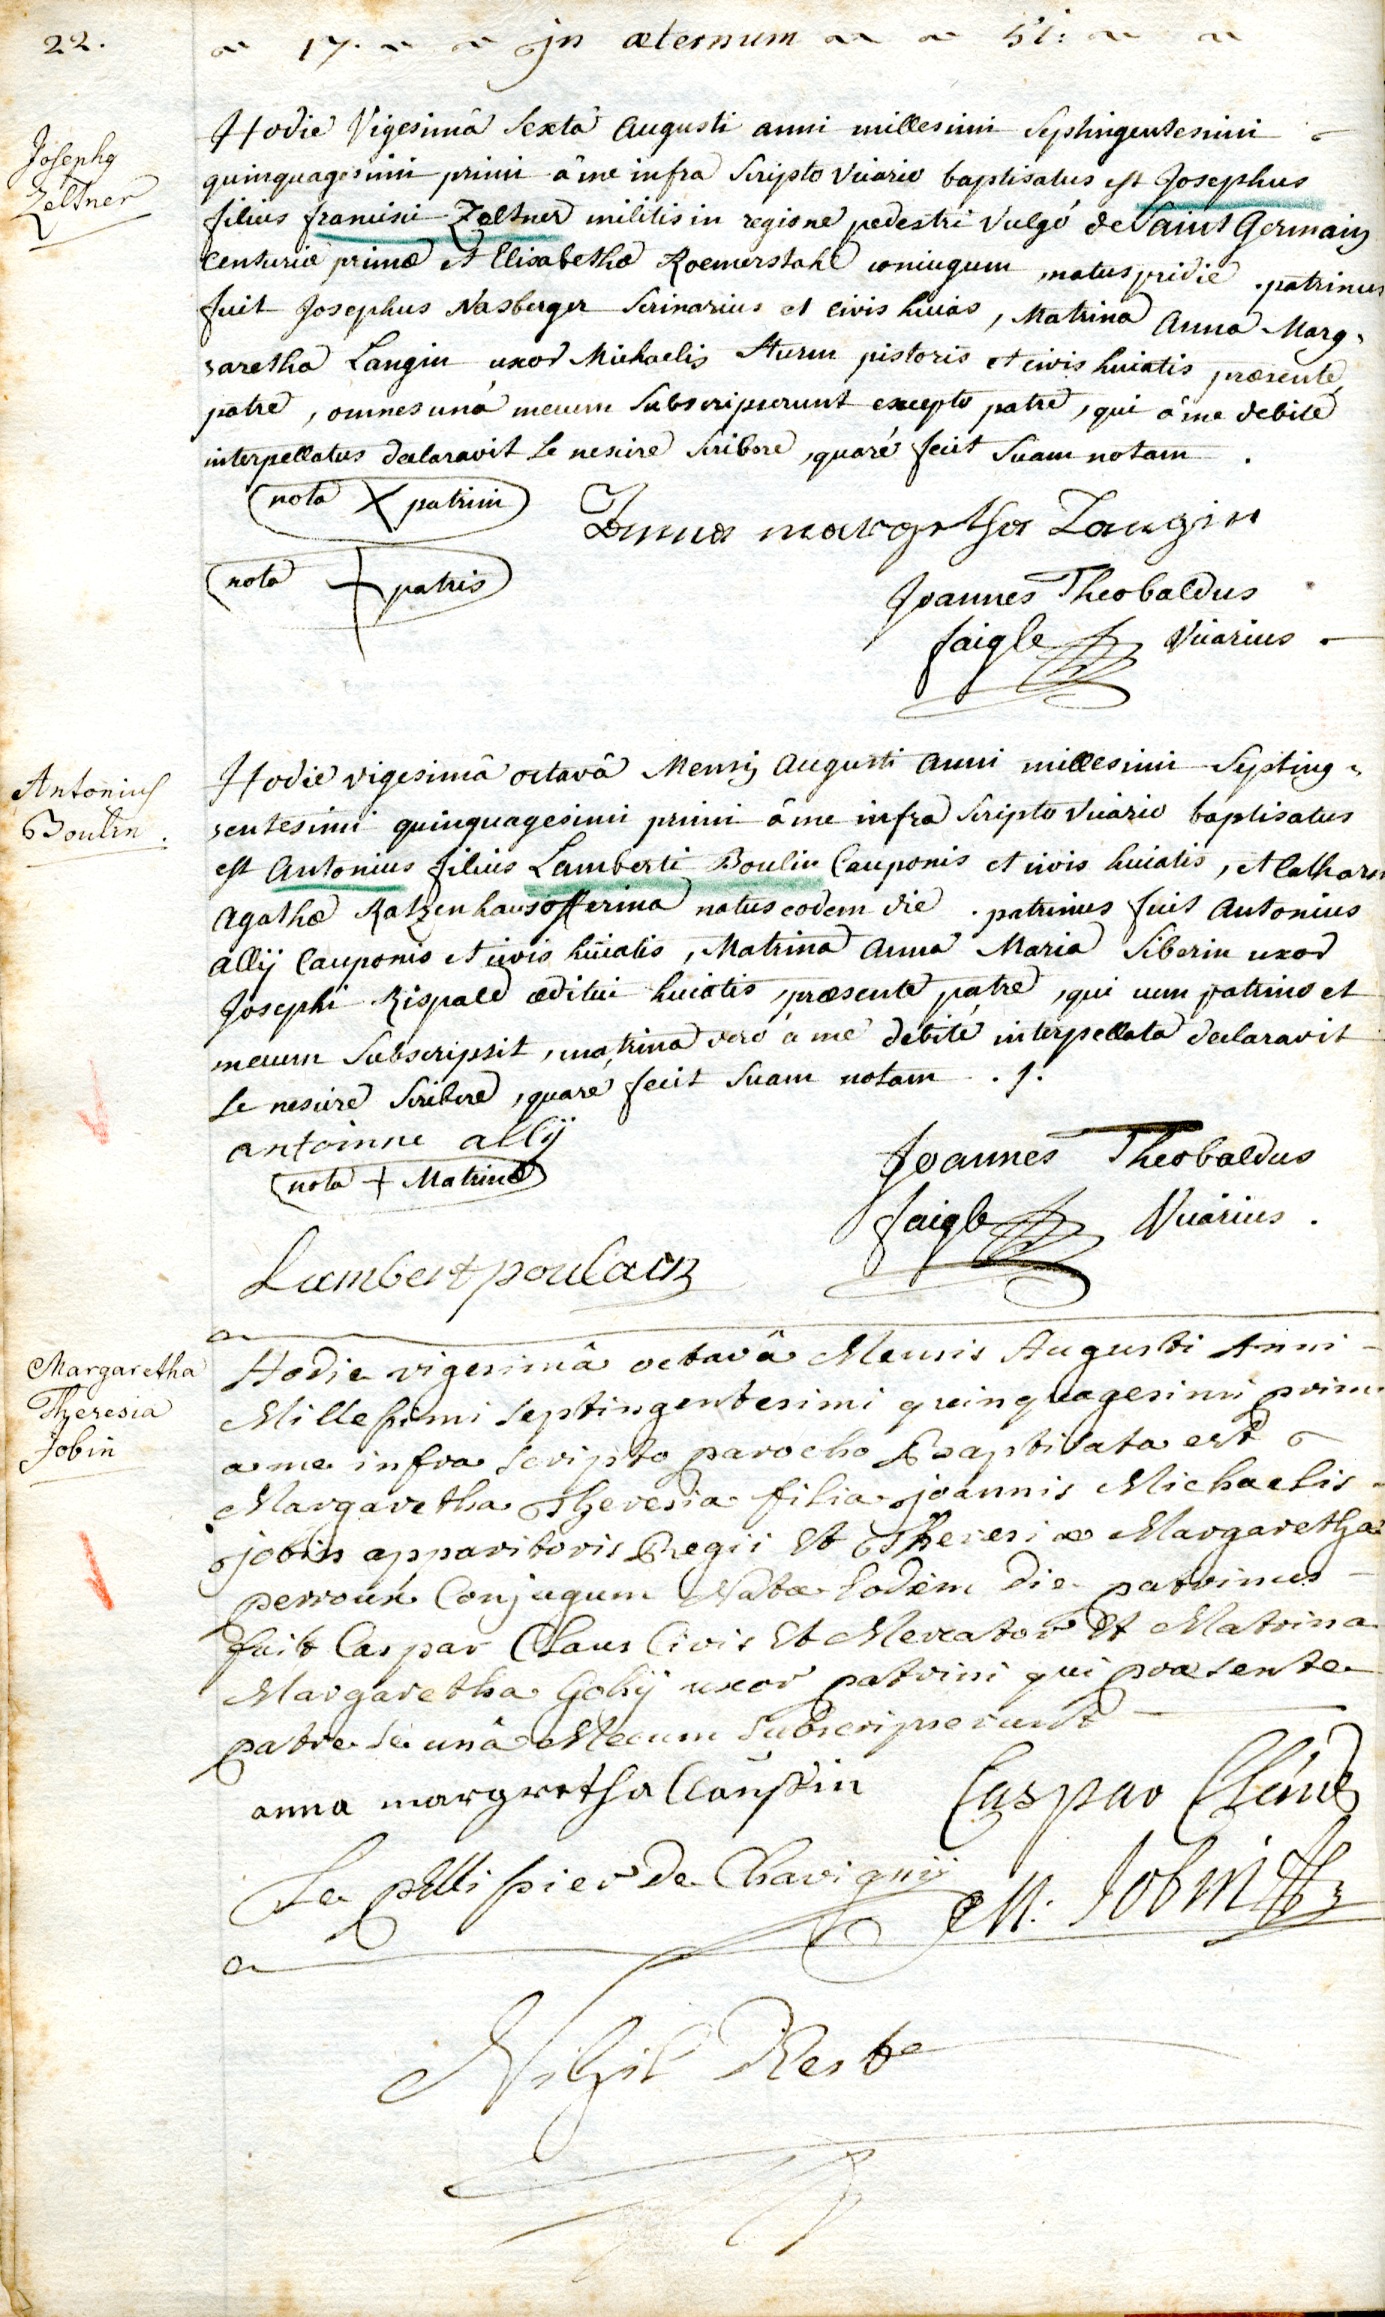 22.
17. in æternum 51:
Josephg
Zeltner
Hodie Vigesimâ Sexta Augusti anni millesimi Septingentesimi
quinquagesimi primi â me infra Scripto Vicario baptisatus est Josephus
filius francisci Zeltner militis in regione pedestri Vulgó de Saint Germain
Centuriæ primæ et Elisabethæ Roemerstahl coniugum, natus pridie. patrinus
fuit Josephus Nasberger Scrinarius et civis huias, Matrina Anna Marg=
=aretha Langin uxor Michaelis Sturm pistoris et civis huiatis præsente
patre, omnes unâ mecum Subscripserunt excepto patre, qui â me debite
interpellatus declaravit Se nescire Scribere, quarè fecit Suam notam.
nota X patrini
Anna margretha Langin
nota + patris
Joannes Theobaldus
faigle Vicarius
Antonius
Boulin.
Hodie vigesimâ octavâ Mensis Augusti Anni millesimi Septing=
=entesimi quinquagesimi primi â me infra Scripto Vicario baptisatus
est Antonius filius Lamberti Boulin Cauponis et civis huiatis, et Cathar
Agathæ Katzenhausofferina natus eodem die. patrinus fuit Antonius
Allij Cauponis et civis huiatis, Matrina Anna Maria Siberin uxor
Josephi Rispald æditui huiatis, præsente patre, qui cum patrino et
mecum Subscripsit, matrina vero â me debité interpellata declaravit
Se nescire Scribere, quare fecit Suam notam . /.
antoinne allij
nota + Matrinæ
Joannes Theobaldus
faigle Vicarius.
Lambert poulain
Margaretha
Theresia
Jobin
Hodie vigesimâ octavâ Mensis Augusti Anni
Millesimi Septingentesimi quinquagesimi primi
a me infra Scripto parocho Baptisata est
Margaretha Theresia filia joannis Michaelis
jobin apparitoris Regii Et Theresiæ Margarethæ
perroux Conjugum Nata Eodem Die patrinus
fuit Caspar Claus Civis Et Mercator Et Matrina
Margaretha Gohij uxor patrini qui præsente
patre se unâ Mecum Subscripserunt
anna margretha Claußin
Caspar Claus
Le pellissier De Chavignij
M: Jobin
Nihil Reste